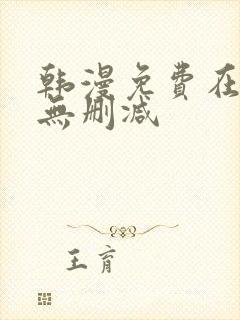 韩漫免费在
無删减
王育